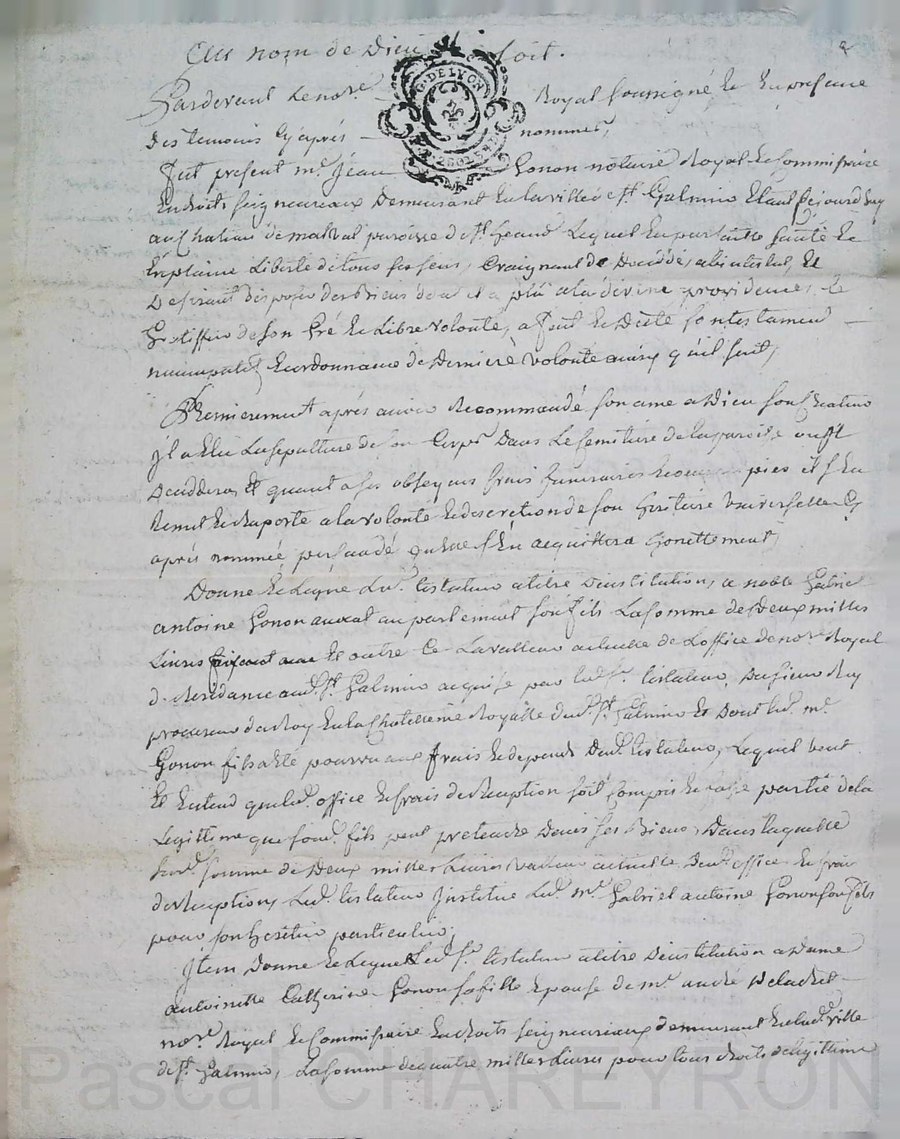 Au nom de Dieu soit.
Pardevant le no.re Royal soussigné et en presence
G. DE LYON
des temoins cy apres nommes,
fut present m.e Jean Gonon notaire Royal et Commissaire
en droits seigneuriaux demeurant en la ville de s.t Galmier Etant
au chateau de malval paroisse de s.t heand Lequel en parfaitte santé et
en plaine Liberté de tous ses sens, Craignant de deceder abintestat, Et
Desirant disposer des biens qu'il a plu a la divine providence, de
de son gré et Libre volonté, a fait et dicté son testament
nuncupatif Et ordonnance de derniere volonté ainsy qu'il suit,
Premierement aprés avoir Recommandé son ame a Dieu son Createur
jl a elu La sepulture de son Corps dans Le semitiere de la paroisse ou jl
decedera, Et quant a ses obseques frais funeraires et pies il s'en
Remet et Raporte a la volonté et discretion de son heritiere universelle cy
après nommée persuadé qu'elle s'en acquittera honettement,
Donne et Legue Led. testateur a titre D'institution, a noble Gabriel
antoine Gonon avocat au parlement son fils La somme de deux milles
Livres Et outre Ce La valleur actuelle de L'office de no.re Royal
de Residance aud. S.t Galmier acquise par led. s.r testateur, du sieur
procureur du Roy en la Chatellenie Royalle dud. S.t Galmier Et Dont led. m.e
Gonon fils a eté pourvu aux frais et depends dud. testateur, Lequel veut
Et Entend que led. office et frais de Reception soit Compris et fasse partie de la
Legittime que sond. fils peut pretendre dans ses Biens, Dans laquelle
somme de Deux milles Livres valleur actuelle dud. office et frais
de Reception, Led. testateur Jnstitue Led. m.e Gabriel antoine Gonon son fils
pour son heritier particulier,
Jtem Donne et Legue Led. s.r testateur a titre D'institution a dame
antoinette Catherine Gonon sa fille Epouse de m.e andré
no.re Royal et Commissaire en droits seigneuriaux demeurant en lad. ville
de s.t Galmier, La somme de quatre milles Livres pour tous droits de legittime
Pascal CHAREYRON